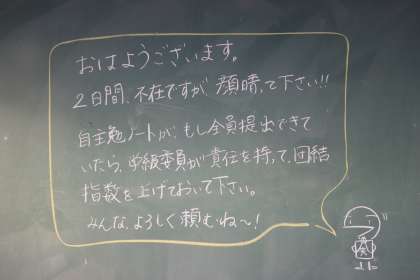 おはようございます。
2日間、不在ですが、顔晴って下さい!!
自主勉ノートが、もし全員提出できて
いたら、学級委員が責任を持って、団結
指数を上げておいて下さい。
みんな、よろしく頼むね〜!